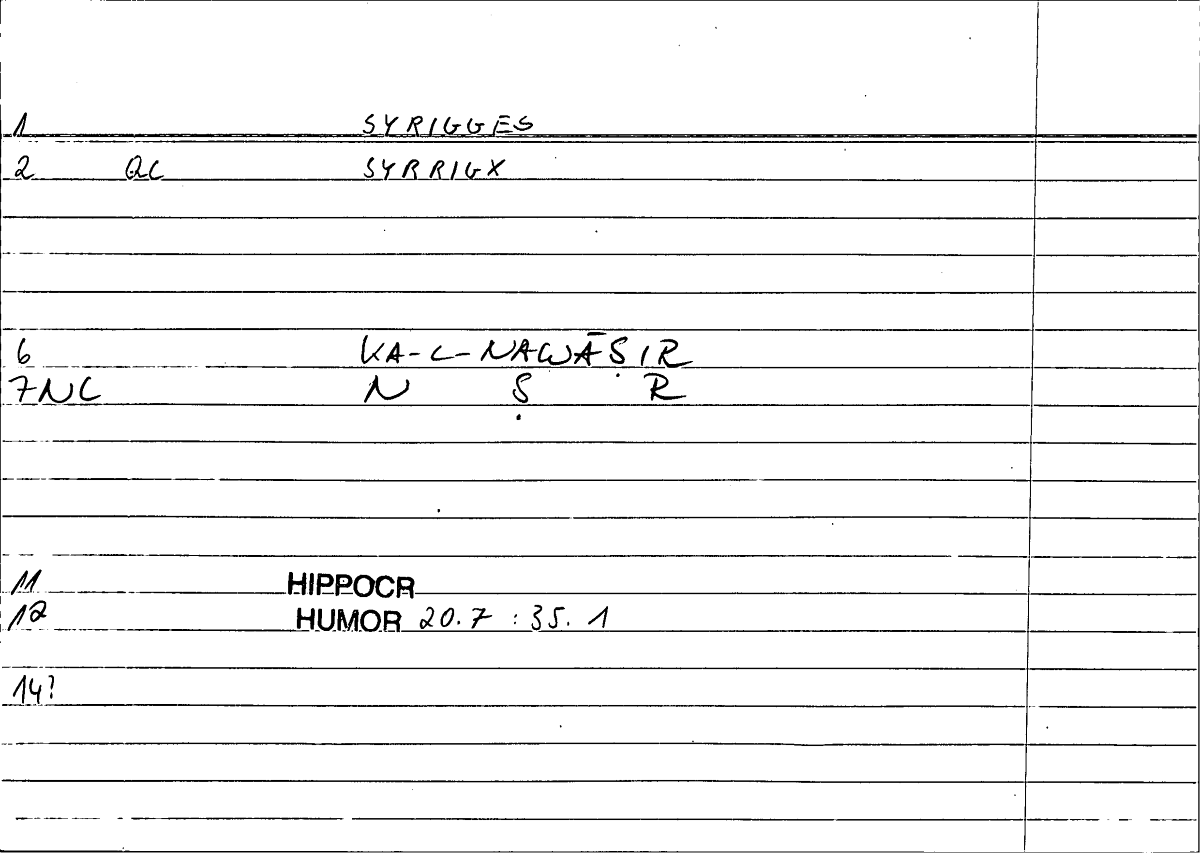 1 SYRIGGES
2 QC SYRRIGX
6 KA-L-NAWĀṢIR
7NC N Ṣ R
11 HIPPOCR
12 HUMOR 20.7 : 35. 1
14?